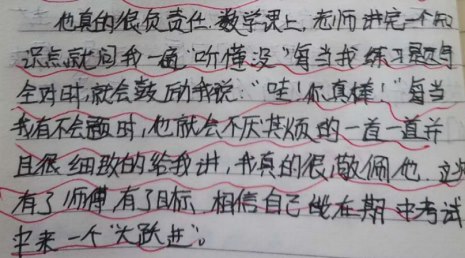 他真的很负责任.数学课上,老师讲完一个知
识点就问我一遍"听懂没"每当我练习题
全对时,就会鼓励我说:"哇!你真棒!"每当
我有不会题时,他就会不厌其烦的一道一道并
且很细致的给我讲,我真的很敬佩他.
有了师傅,有了目标.相信自己能在期中考试
中来一个"大跃进"。